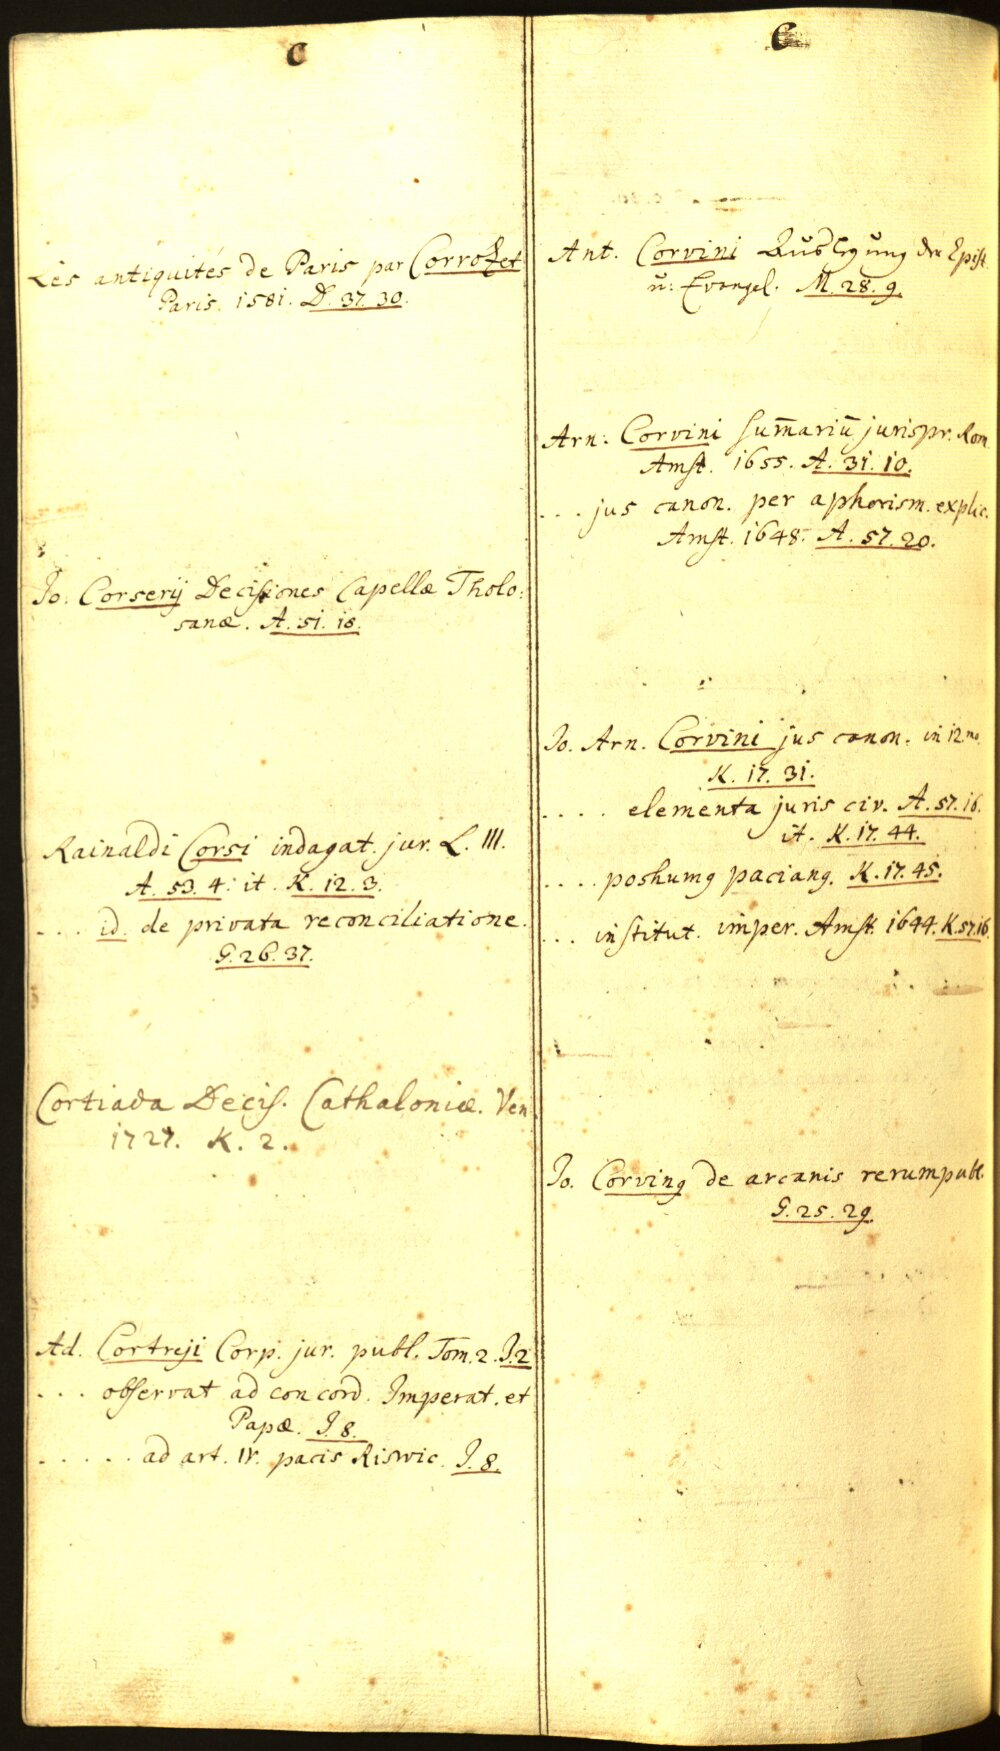 C
Les antiquités de Paris par Corrozet
Paris. 1581. D. 37. 30.
Jo. Corserij Decisiones Capellæ Tholo:
sanæ. A. 51. 18.
Rainaldi Corsi indagat. jur. L. III.
A. 53. 4. it. K. 12. 3.
. . . id. de privata reconciliatione.
G. 26. 37.
Cortiada Decis. Cathaloniæ. Ven.
1727. K. 2.
Ad. Cortreji Corp. jur. publ. Tom. 2. J. 2
. . . observat ad concord. Imperat. et
Papæ. J. 8.
. . . . . ad art. IV. pacis Riswic. J. 8.
C
Ant. Corvini Auslegung der Epist.
u: Evangel. M. 28. 9.
Arn. Corvini sum̄ariū jurispr. Rom.
Amst. 1655. A. 31. 10.
. . . jus canon. per aphorism. explic.
Amst. 1648. A. 57. 20.
Jo. Arn. Corvini jus canon. in 12mo.
K. 17. 31.
. . . . elementa juris civ. A. 57. 16.
it. K. 17. 44.
. . . . poshumg paciang. K. 17. 45.
. . . institut. imper. Amst. 1644. K. 57. 16.
Jo. Corving de arcanis rerumpubl.
G. 25. 29.